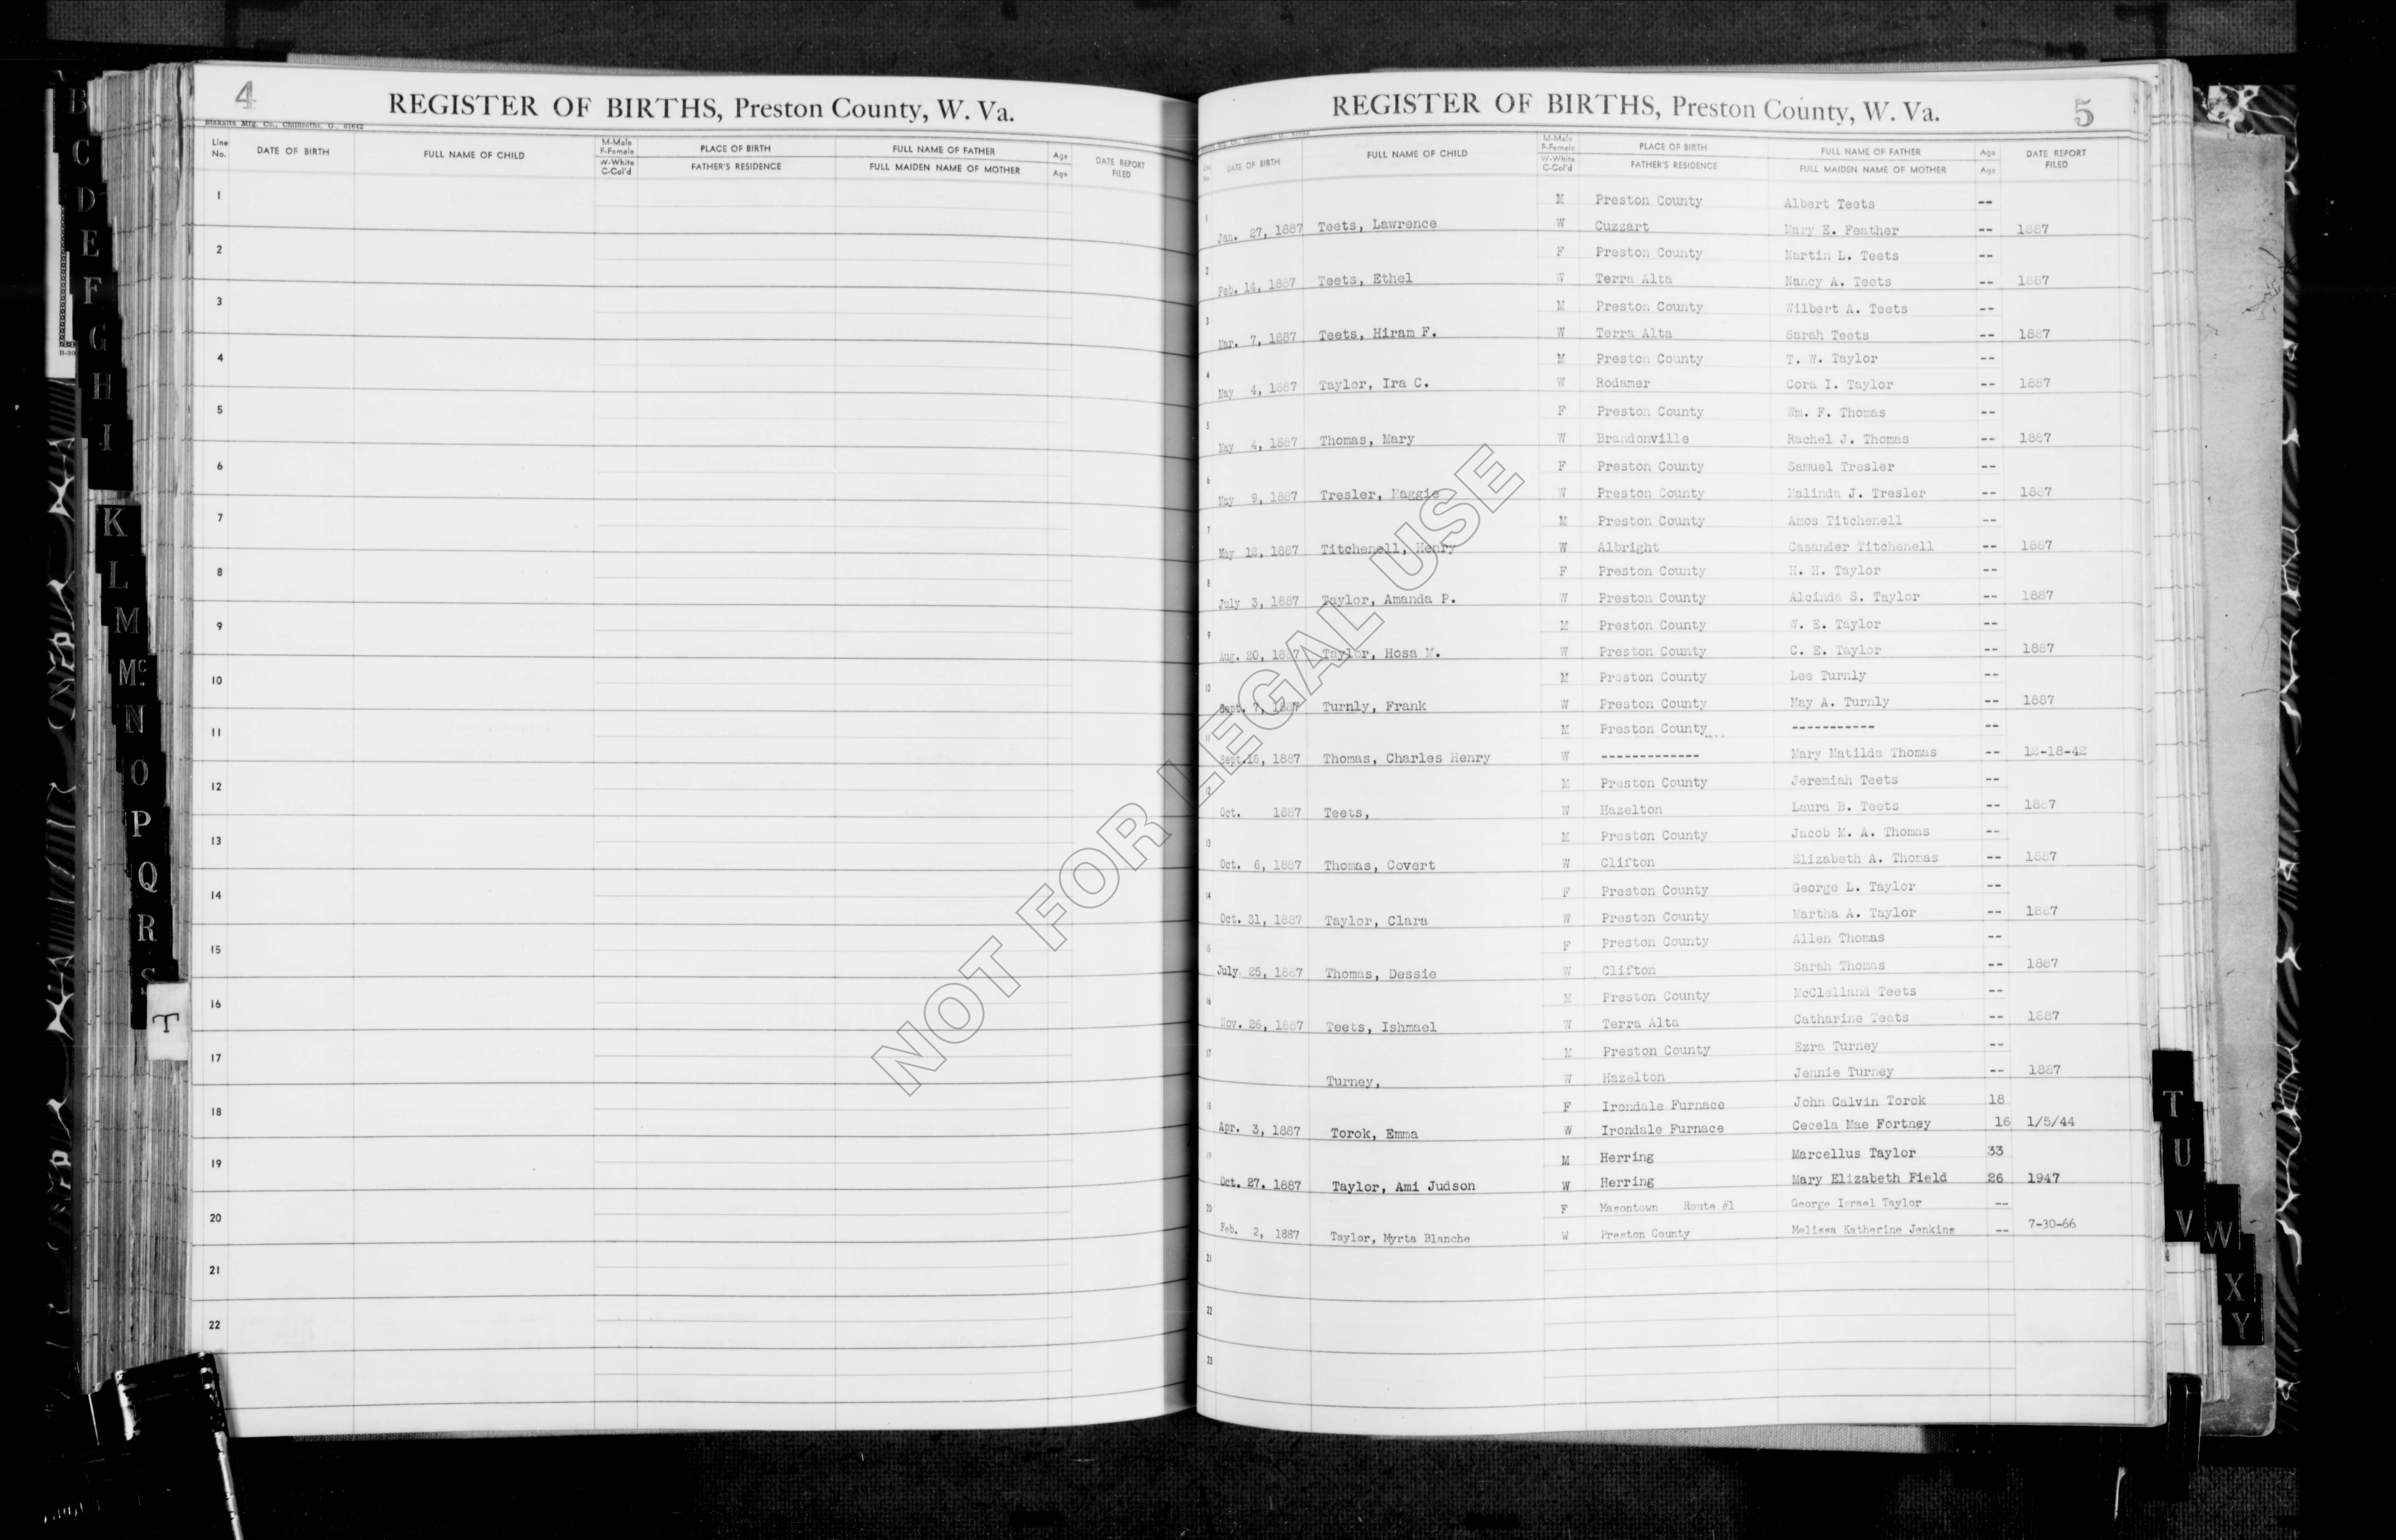 4
REGISTER OF BIRTHS, Preston County, W. Va.
Line No. DATE OF BIRTH FULL NAME OF CHILD M-Male F-Female W-White C-Col'd PLACE OF BIRTH FATHER'S RESIDENCE FULL NAME OF FATHER FULL MAIDEN NAME OF MOTHER Age Age DATE REPORT FILED
1
2
3
4
5
6
7
8
9
10
11
12
13
14
15
16
17
18
19
20
21
22
REGISTER OF BIRTHS, Preston County, W. Va.
5
DATE OF BIRTH FULL NAME OF CHILD M-Male F-Female W-White C-Col'd PLACE OF BIRTH FATHER'S RESIDENCE FULL NAME OF FATHER FULL MAIDEN NAME OF MOTHER Age Age DATE REPORT FILED
1 M Preston County Albert Teets --
Jan. 27, 1887 Teets, Lawrence W Cuzzart Mary E. Feather -- 1887
2 F Preston County Martin L. Teets --
Feb. 14, 1887 Teets, Ethel W Terra Alta Nancy A. Teets -- 1887
3 M Preston County Wilbert A. Teets --
Mar. 7, 1887 Teets, Hiram F. W Terra Alta Sarah Teets -- 1887
4 M Preston County T. W. Taylor --
May 4, 1887 Taylor, Ira C. W Rodamer Cora I. Taylor -- 1887
5 F Preston County Wm. F. Thomas --
May 4, 1887 Thomas, Mary W Brandonville Rachel J. Thomas -- 1887
6 F Preston County Samuel Tresler --
May 9, 1887 Tresler, Maggie W Preston County Malinda J. Tresler -- 1887
7 M Preston County Amos Titchenell --
May 12, 1887 Titchenell, Henry W Albright Casander Titchenell -- 1887
8 F Preston County H. H. Taylor --
July 3, 1887 Taylor, Amanda P. W Preston County Alcinda S. Taylor -- 1887
9 M Preston County W. E. Taylor --
Aug. 20, 1887 Taylor, Hosa M. W Preston County C. E. Taylor -- 1887
10 M Preston County Lee Turnly --
Sept. 7, 1887 Turnly, Frank W Preston County May A. Turnly -- 1887
11 M Preston County... ----------- --
Sept.16, 1887 Thomas, Charles Henry W ------------- Mary Matilda Thomas -- 12-18-42
12 M Preston County Jeremiah Teets --
Oct. 1887 Teets, W Hazelton Laura B. Teets -- 1887
13 M Preston County Jacob M. A. Thomas --
Oct. 6, 1887 Thomas, Covert W Clifton Elizabeth A. Thomas -- 1887
14 F Preston County George L. Taylor --
Oct. 31, 1887 Taylor, Clara W Preston County Martha A. Taylor -- 1887
15 F Preston County Allen Thomas --
July 25, 1887 Thomas, Dessie W Clifton Sarah Thomas -- 1887
16 M Preston County McClelland Teets --
Nov. 26, 1887 Teets, Ishmael W Terra Alta Catharine Teets -- 1887
17 M Preston County Ezra Turney --
Turney, W Hazelton Jennie Turney -- 1887
18 F Irondale Furnace John Calvin Torok 18
Apr. 3, 1887 Torok, Emma W Irondale Furnace Cecela Mae Fortney 16 1/5/44
19 M Herring Marcellus Taylor 33
Oct. 27. 1887 Taylor, Ami Judson W Herring Mary Elizabeth Field 26 1947
20 F Masontown Route #1 George Israel Taylor --
Feb. 2, 1887 Taylor, Myrta Blanche W Preston County Melissa Katherine Jenkins -- 7-30-66
21
22
23
NOT FOR LEGAL USE
B
C
D
E
F
G
H
I
K
L
M
Mc
N
O
P
Q
R
S
T
T
U
V
W
X
Y